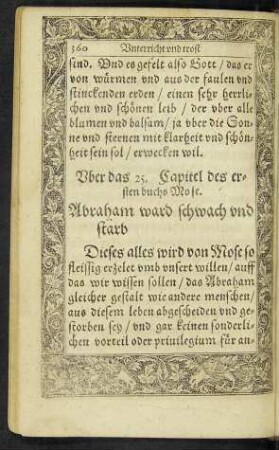 360 Vnterricht vnd trost
sind. Vnd es gefelt also Gott / das er
von würmen vnd aus der faulen vnd
stinckenden erden / einen sehr herrli-
chen vnd schönen leib / der vber alle
blumen vnd balsam / ja vber die Son-
ne vnd sternen mit klarheit vnd schön-
heit sein sol / erwecken wil.
Vber das 25. Capitel des er-
sten buchs Mose.
Abraham ward schwach vnd
starb
Dieses alles wird von Mose so
fleissig erzelet vmb vnsert willen / auff
das wir wissen sollen / das Abraham
gleicher gestalt wie andere menschen /
aus diesem leben abgescheiden vnd ge-
storben sey / vnd gar keinen sonderli-
chen vorteil oder priuilegium für an-